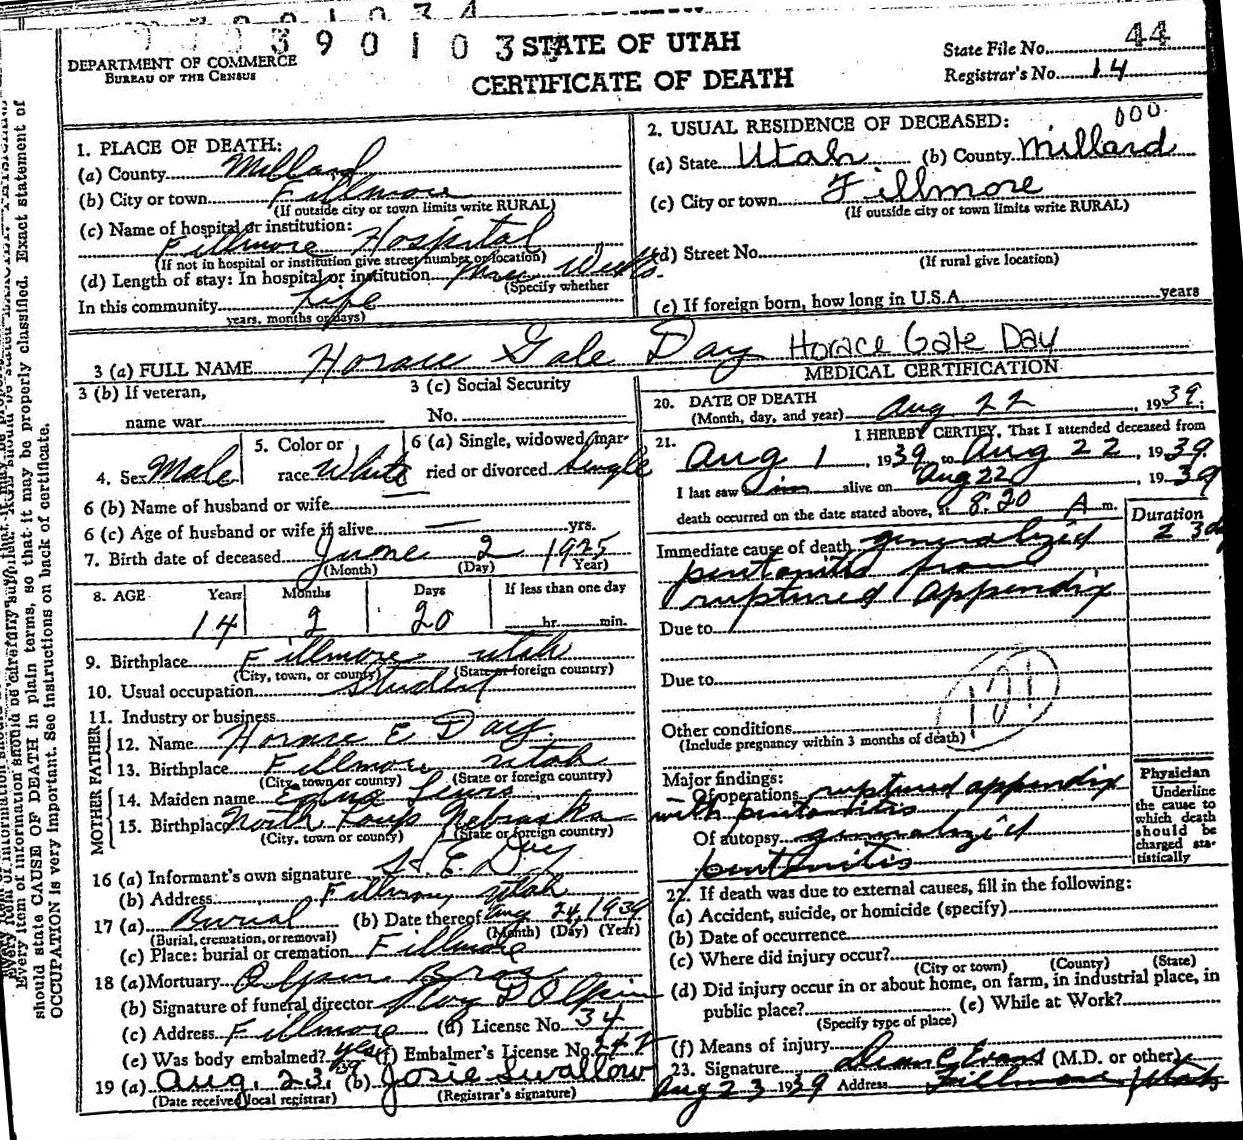 9 7 0 3 9 0 1 0 3
STATE OF UTAH
CERTIFICATE OF DEATH
DEPARTMENT OF COMMERCE
BUREAU OF THE CENSUS
State File No. 44
Registrar's No. 14
1. PLACE OF DEATH:
(a) County Millard
(b) City or town Fillmore
(If outside city or town limits write RURAL)
(c) Name of hospital or institution:
Fillmore Hospital
(If not in hospital or institution give street number or location)
(d) Length of stay: In hospital or institution
(Specify whether
In this community Life
years, months or days)
2. USUAL RESIDENCE OF DECEASED: 000
(a) State Utah (b) County Millard
(c) City or town Fillmore
(If outside city or town limits write RURAL)
(d) Street No.
(If rural give location)
(e) If foreign born, how long in U.S.A. years
3 (a) FULL NAME Horace Gale Day Horace Gale Day
3 (b) If veteran,
name war
3 (c) Social Security
No.
4. Sex Male
5. Color or
race White
6 (a) Single, widowed, mar-
ried or divorced Single
6 (b) Name of husband or wife
6 (c) Age of husband or wife if alive — yrs.
7. Birth date of deceased June 2 1925
(Month) (Day) (Year)
8. AGE Years Months Days If less than one day
14 2 20 hr. min.
9. Birthplace Fillmore Utah
(City, town, or county) (State or foreign country)
10. Usual occupation Student
11. Industry or business
FATHER
12. Name Horace E Day
13. Birthplace Fillmore Utah
(City, town or county) (State or foreign country)
MOTHER
14. Maiden name Lewis
15. Birthplace North Loup Nebraska
(City, town or county) (State or foreign country)
16 (a) Informant's own signature H. E. Day
(b) Address Fillmore Utah
17 (a) Burial (b) Date thereof Aug 24, 1939
(Burial, cremation, or removal) (Month) (Day) (Year)
(c) Place: burial or cremation Fillmore
18 (a) Mortuary Olpin Bros
(b) Signature of funeral director Roy D Olpin
(c) Address Fillmore (d) License No. 34
(e) Was body embalmed? yes (f) Embalmer's License No. 247
19 (a) Aug. 23, 39 (b) Josie Swallow
(Date received local registrar) (Registrar's signature)
MEDICAL CERTIFICATION
20. DATE OF DEATH
(Month, day, and year) Aug 22, 1939.
21. I HEREBY CERTIFY, That I attended deceased from
Aug 1, 1939 to Aug 22, 1939
I last saw him alive on Aug 22, 1939
death occurred on the date stated above, at 8:20 A m.
Duration
23d
Immediate cause of death generalized
peritonitis from
ruptured appendix
Due to
Due to
121
Other conditions
(Include pregnancy within 3 months of death)
Major findings:
Of operations ruptured appendix
with peritonitis
Of autopsy generalized
peritonitis
Physician
Underline
the cause to
which death
should be
charged sta-
tistically
22. If death was due to external causes, fill in the following:
(a) Accident, suicide, or homicide (specify)
(b) Date of occurrence
(c) Where did injury occur?
(City or town) (County) (State)
(d) Did injury occur in or about home, on farm, in industrial place, in
public place? (e) While at Work?
(Specify type of place)
(f) Means of injury
23. Signature Dean C Evans (M.D. or other)
Aug 23 1939 Address Fillmore, Utah
Every item of information should be carefully supplied. Exact statement of
should state CAUSE OF DEATH in plain terms, so that it may be properly classified.
OCCUPATION is very important. See instructions on back of certificate.